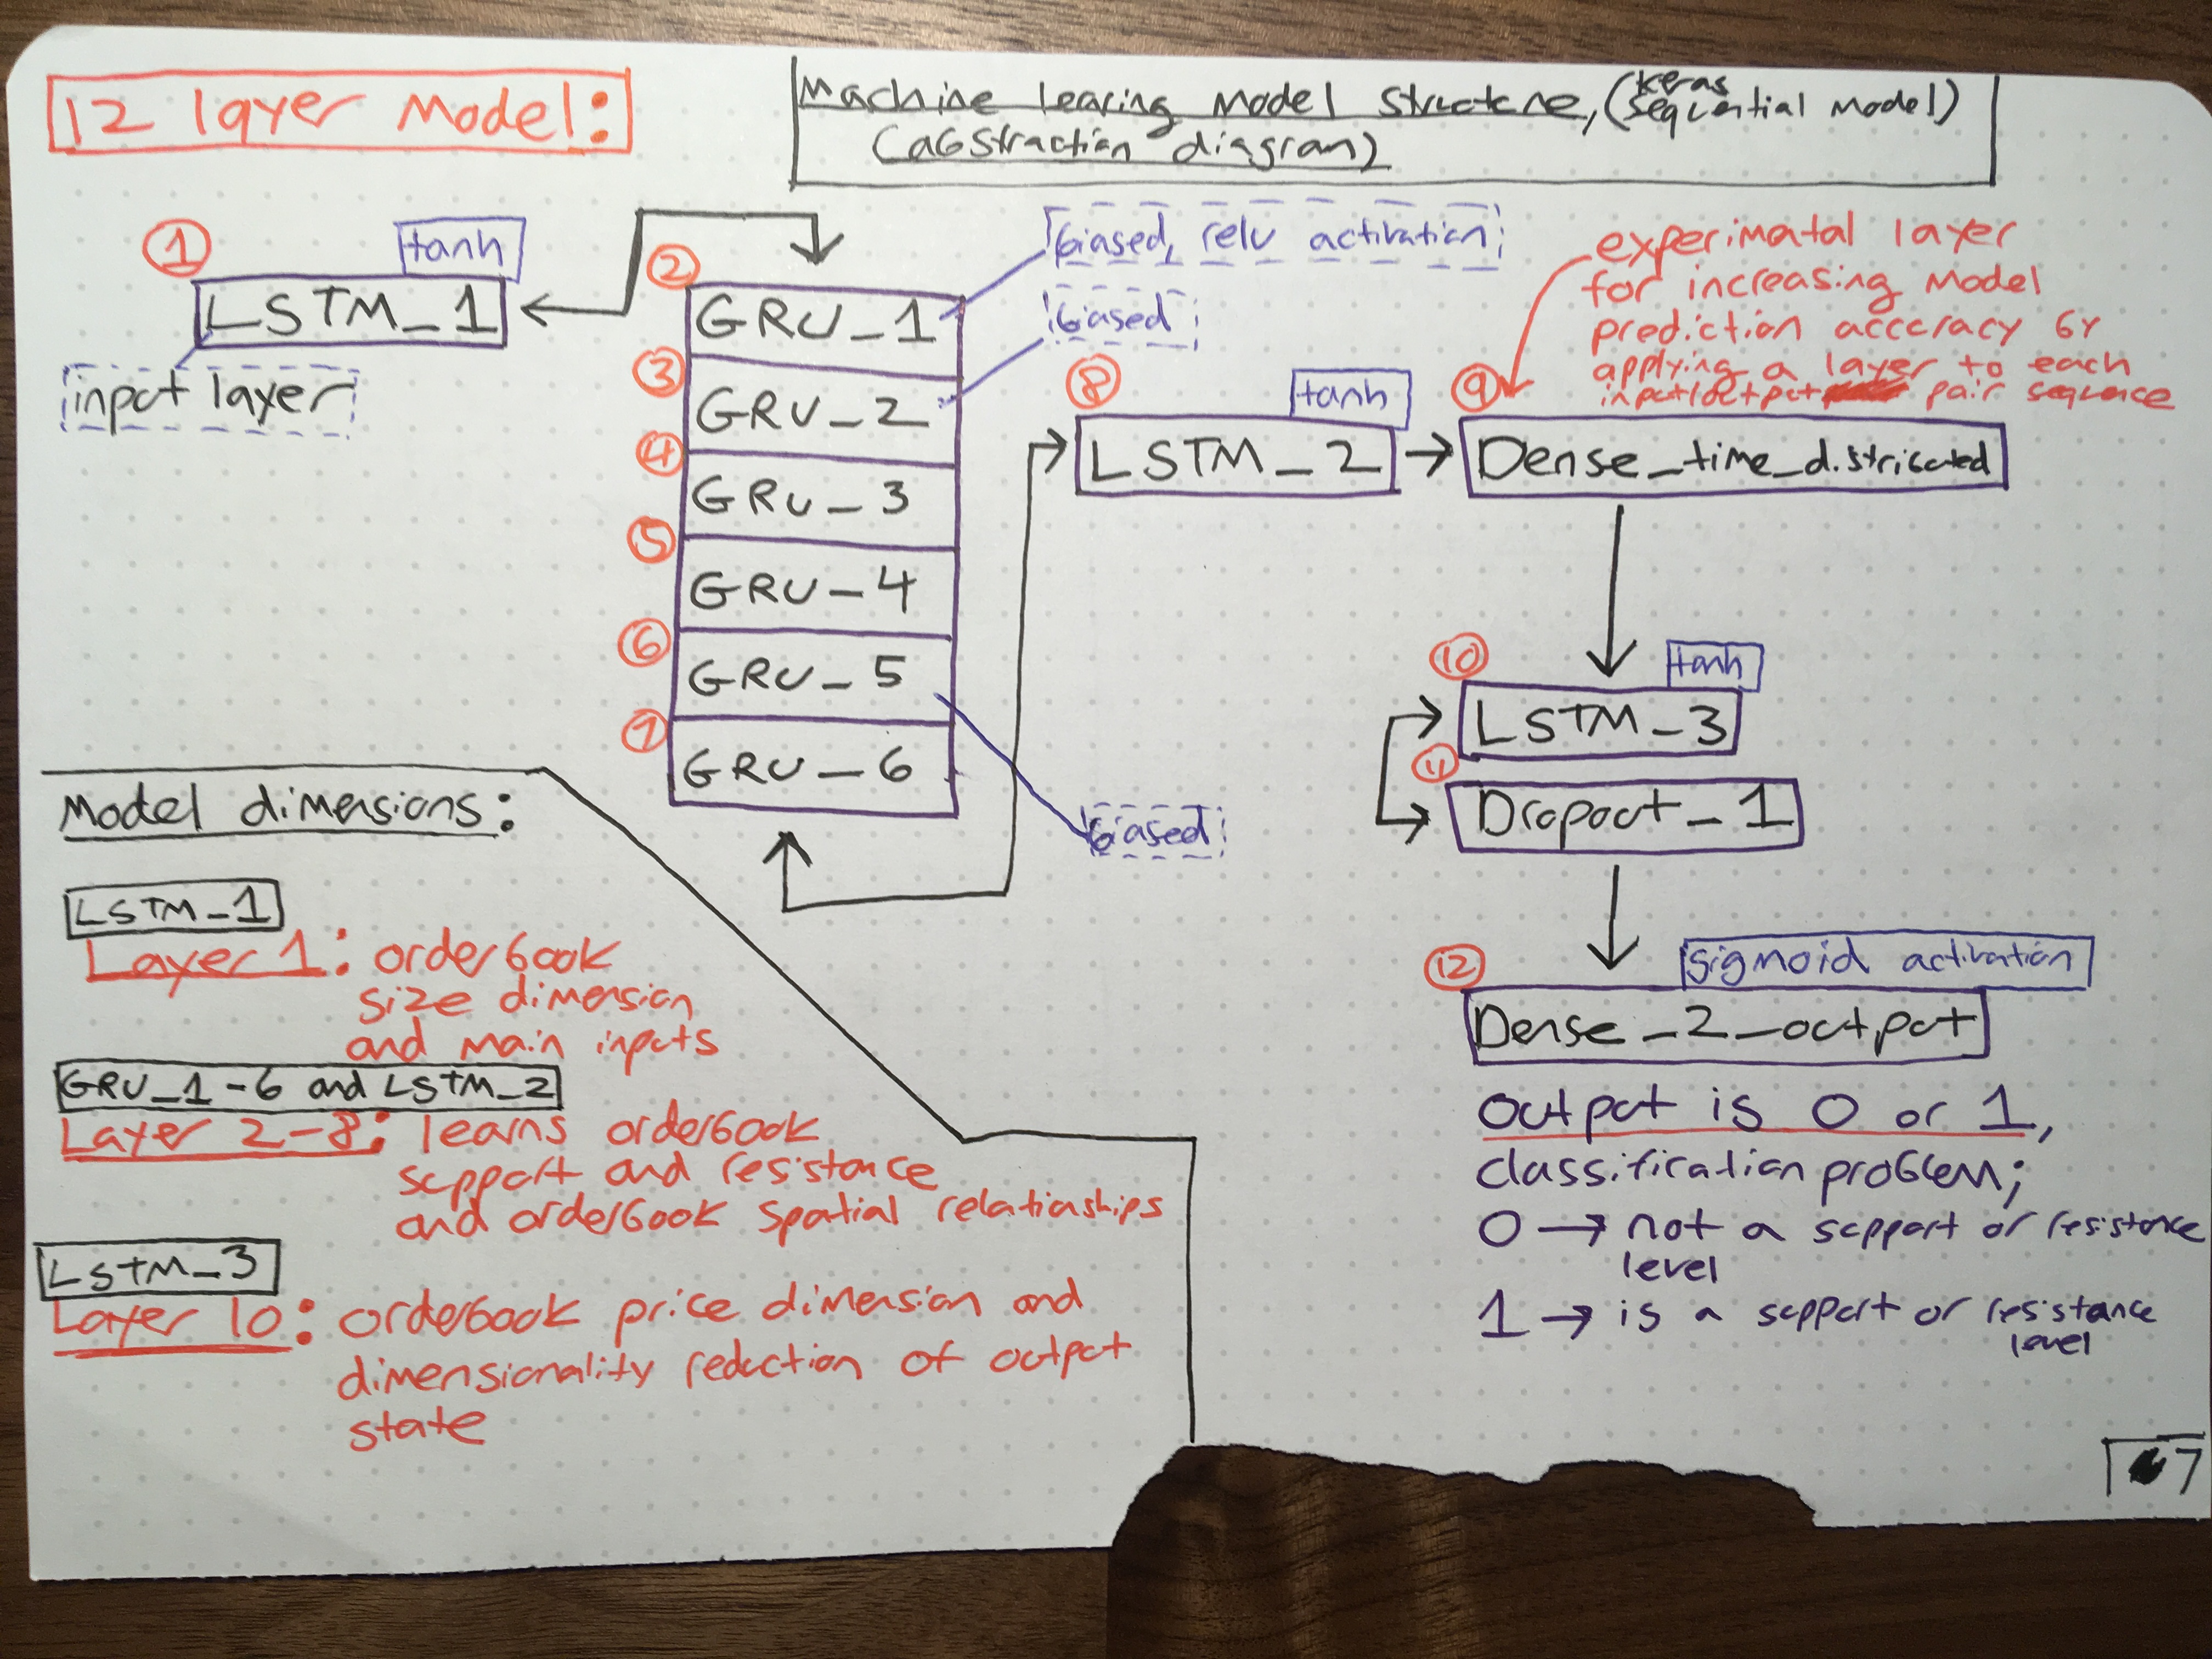 12 layer Model:
Machine learing Model Structure, (keras
sequential Model)
(abstraction diagram)
1
tanh
LSTM_1
input layer
2
GRU_1
biased, relu activation
3
GRU_2
biased
4
GRU_3
5
GRU_4
6
GRU_5
biased
7
GRU_6
8
tanh
LSTM_2
experimatal layer
for increasing Model
prediction accuracy by
applying a layer to each
input/output pair sequence
9
Dense_time_distributed
10
tanh
LSTM_3
11
Dropout_1
12
sigmoid activation
Dense_2_output
Output is 0 or 1,
classification problem;
0 → not a support or resistance
level
1 → is a support or resistance
level
Model dimensions:
LSTM_1
Layer 1: orderbook
size dimension
and main inputs
GRU_1-6 and LSTM_2
Layer 2-8: learns orderbook
support and resistance
and orderbook spatial relationships
LSTM_3
Layer 10: orderbook price dimension and
dimensionality reduction of output
state
7